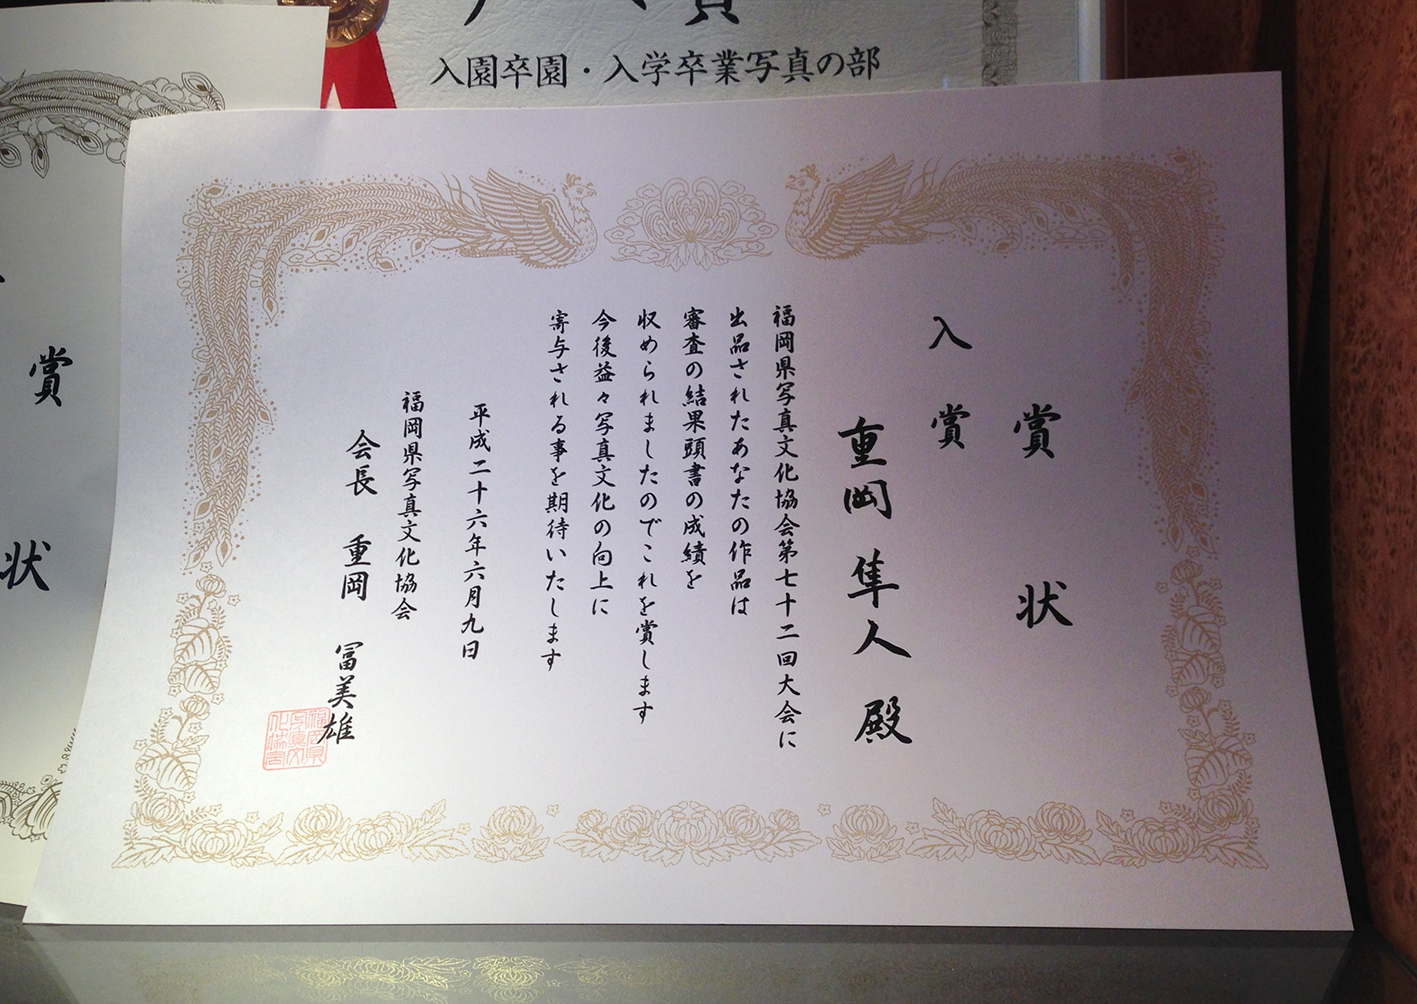 入園卒園・入学卒業写真の部
賞状
入賞
重岡 隼人 殿
福岡県写真文化協会第七十二回大会に
出品されたあなたの作品は
審査の結果頭書の成績を
収められましたのでこれを賞します
今後益々写真文化の向上に
寄与される事を期待いたします
平成二十六年六月九日
福岡県写真文化協会
会長 重岡 冨美雄
賞状